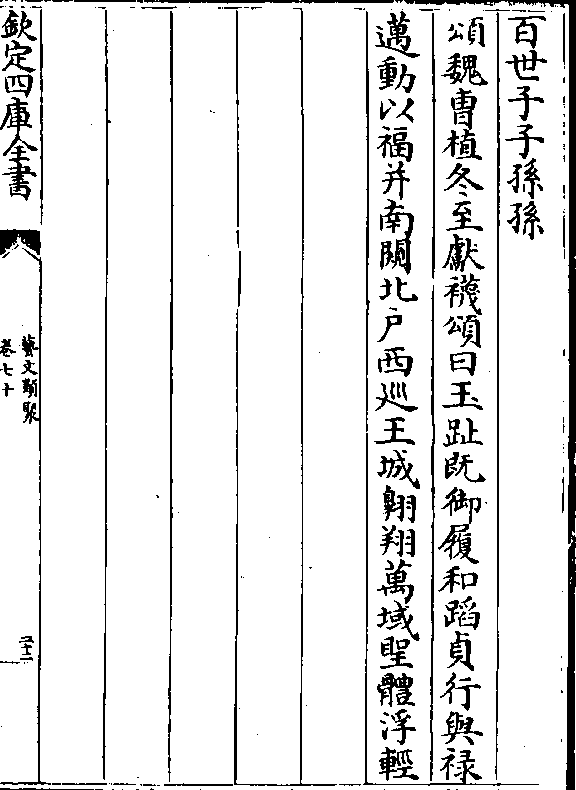 百世子子孫孫
頌魏曹植冬至獻襪頌曰玉趾既御履和蹈貞行與禄
邁動以福并南闚北户西巡王城翺翔萬域聖體浮輕
欽定四庫全書
藝文類聚
卷七十